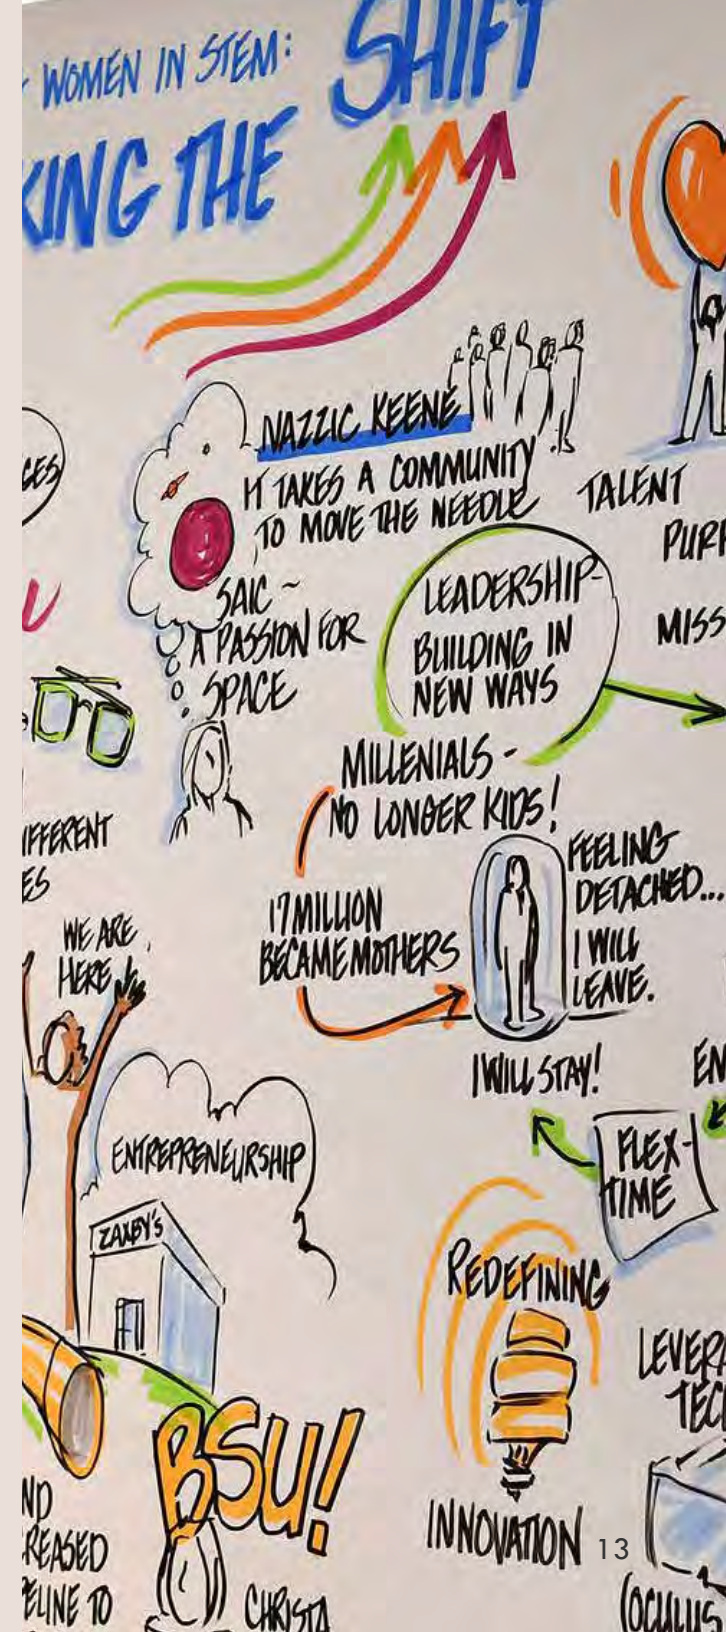 WOMEN IN STEM:
KING THE SHIFT
NAZZIC KEENE
IT TAKES A COMMUNITY
TO MOVE THE NEEDLE
SAIC ~
A PASSION FOR
SPACE
TALENT
LEADERSHIP-
BUILDING IN
NEW WAYS
MILLENIALS -
NO LONGER KIDS!
17 MILLION
BECAME MOTHERS
FEELING
DETACHED...
I WILL
LEAVE.
I WILL STAY!
FLEX-
TIME
IFFERENT
ES
WE ARE
HERE
ENTREPRENEURSHIP
ZAXBY'S
BSU!
REDEFINING
INNOVATION
LEVERA
TEC
(OCULUS
ND
REASED
ELINE TO
CHRISTA
13